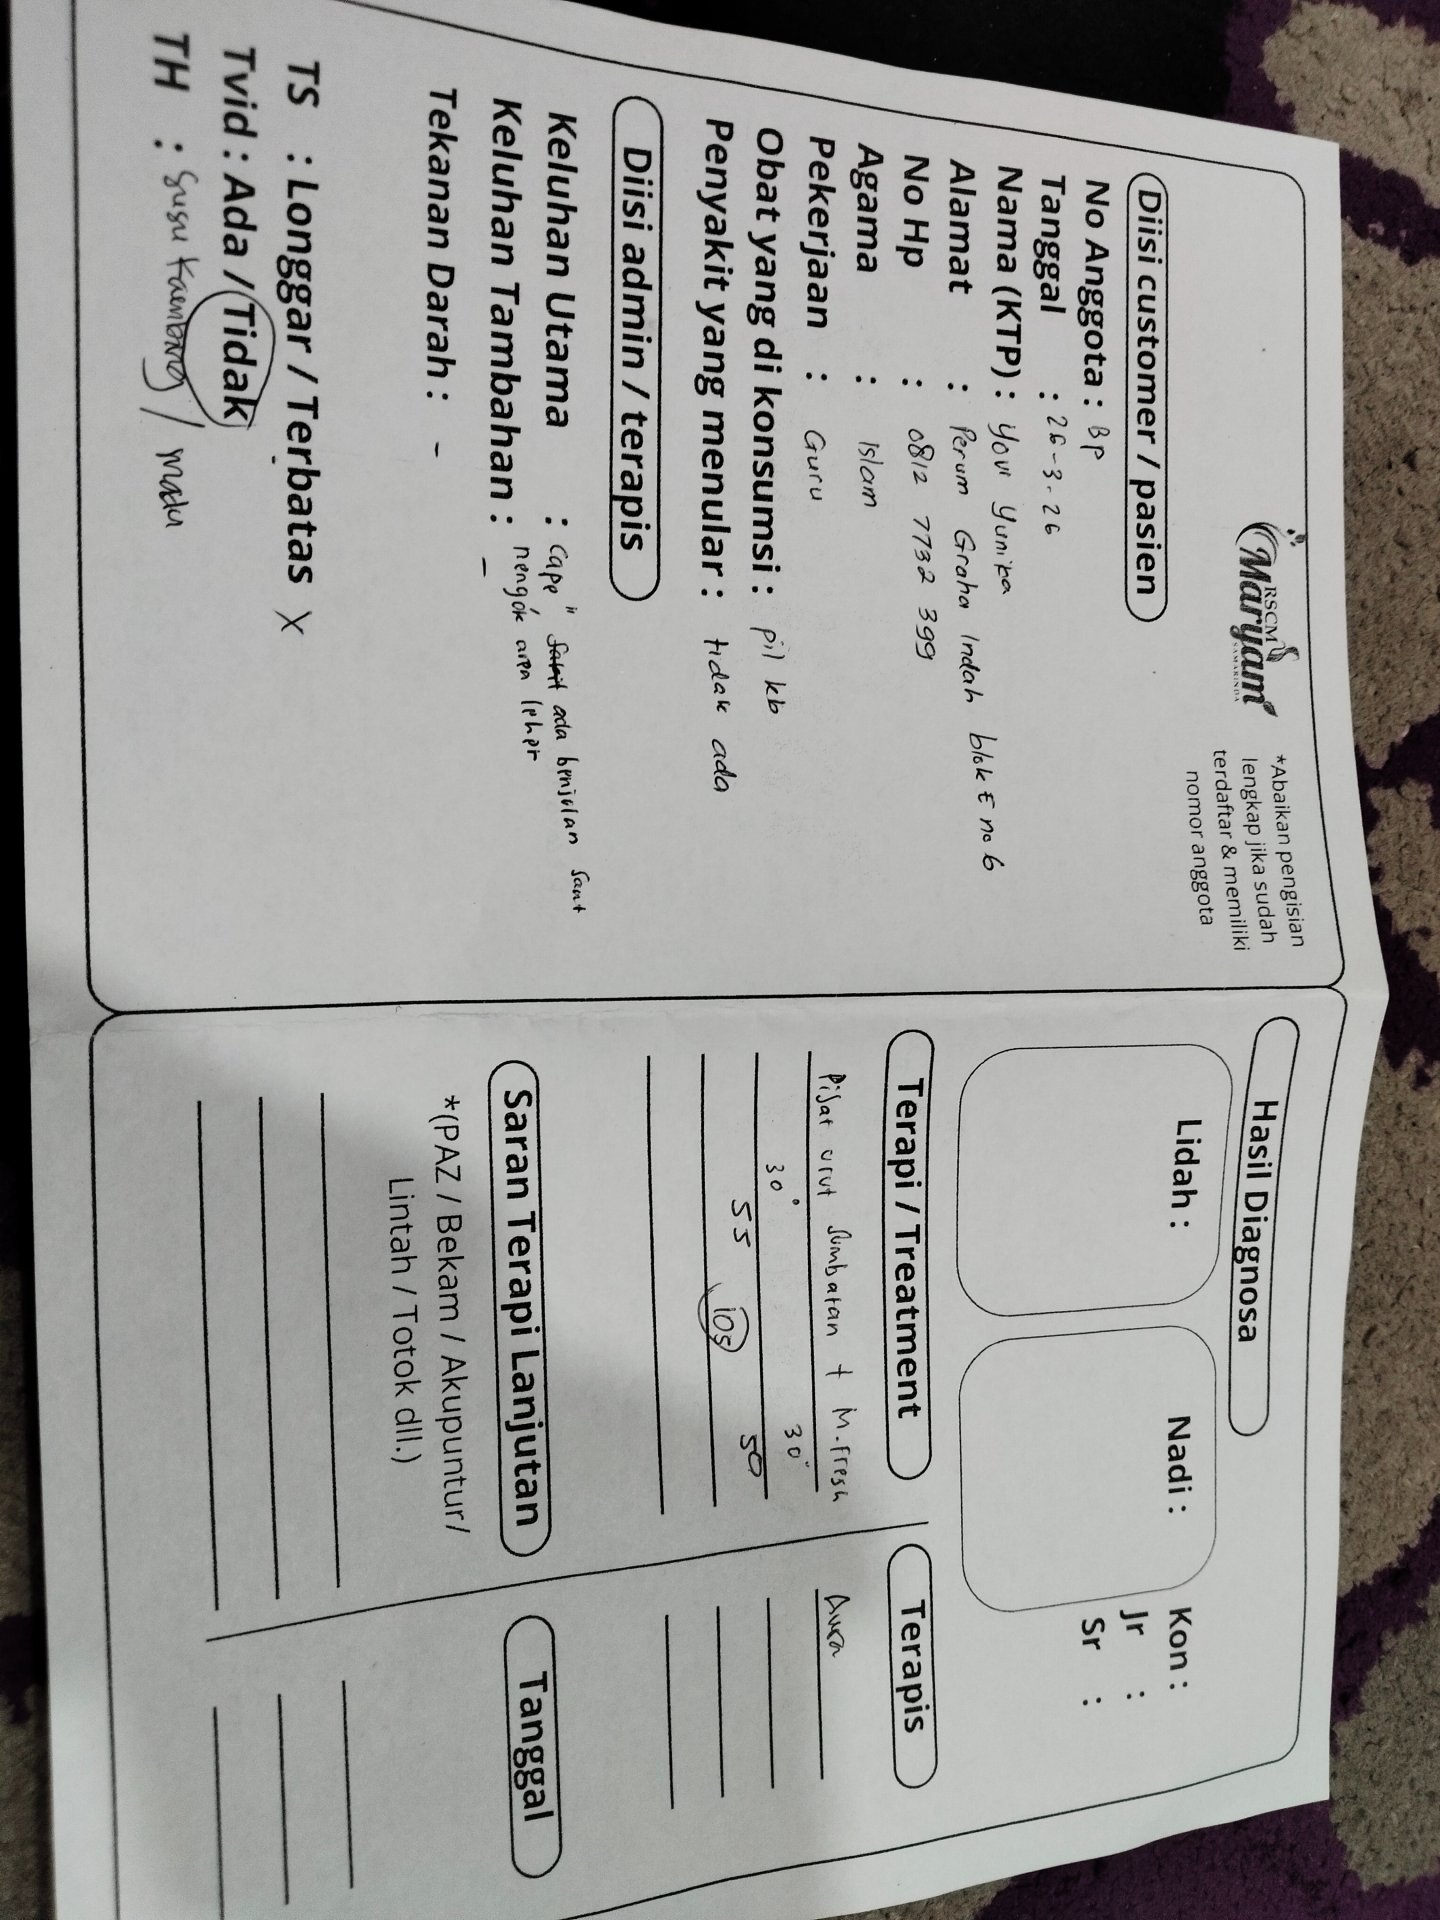 RSCM
Maryam
SAMARINDA
*Abaikan pengisian
lengkap jika sudah
terdaftar & memiliki
nomor anggota
Diisi customer / pasien
No Anggota : BP
Tanggal : 26-3-26
Nama (KTP) : Yovi Yunika
Alamat : Perum Graha Indah blok E no 6
No Hp : 0812 7732 399
Agama : Islam
Pekerjaan : Guru
Obat yang di konsumsi : pil kb
Penyakit yang menular : tidak ada
Diisi admin / terapis
Keluhan Utama : cape" ada benjolan saat
nengok area leher
Keluhan Tambahan : -
Tekanan Darah : -
TS : Longgar / Terbatas X
Tvid : Ada / Tidak
TH : Susu Kambing / madu
Hasil Diagnosa
Lidah :
Nadi :
Kon :
Jr :
Sr :
Terapi / Treatment
Terapis
Pisat urut Sumbatan + M.Fresh
Aura
30" 30"
55 50
105
Saran Terapi Lanjutan
Tanggal
*(PAZ / Bekam / Akupuntur/
Lintah / Totok dll.)